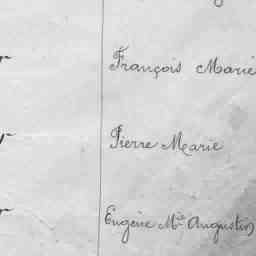 François Marie
Pierre Marie
Eugène Mie Augustin